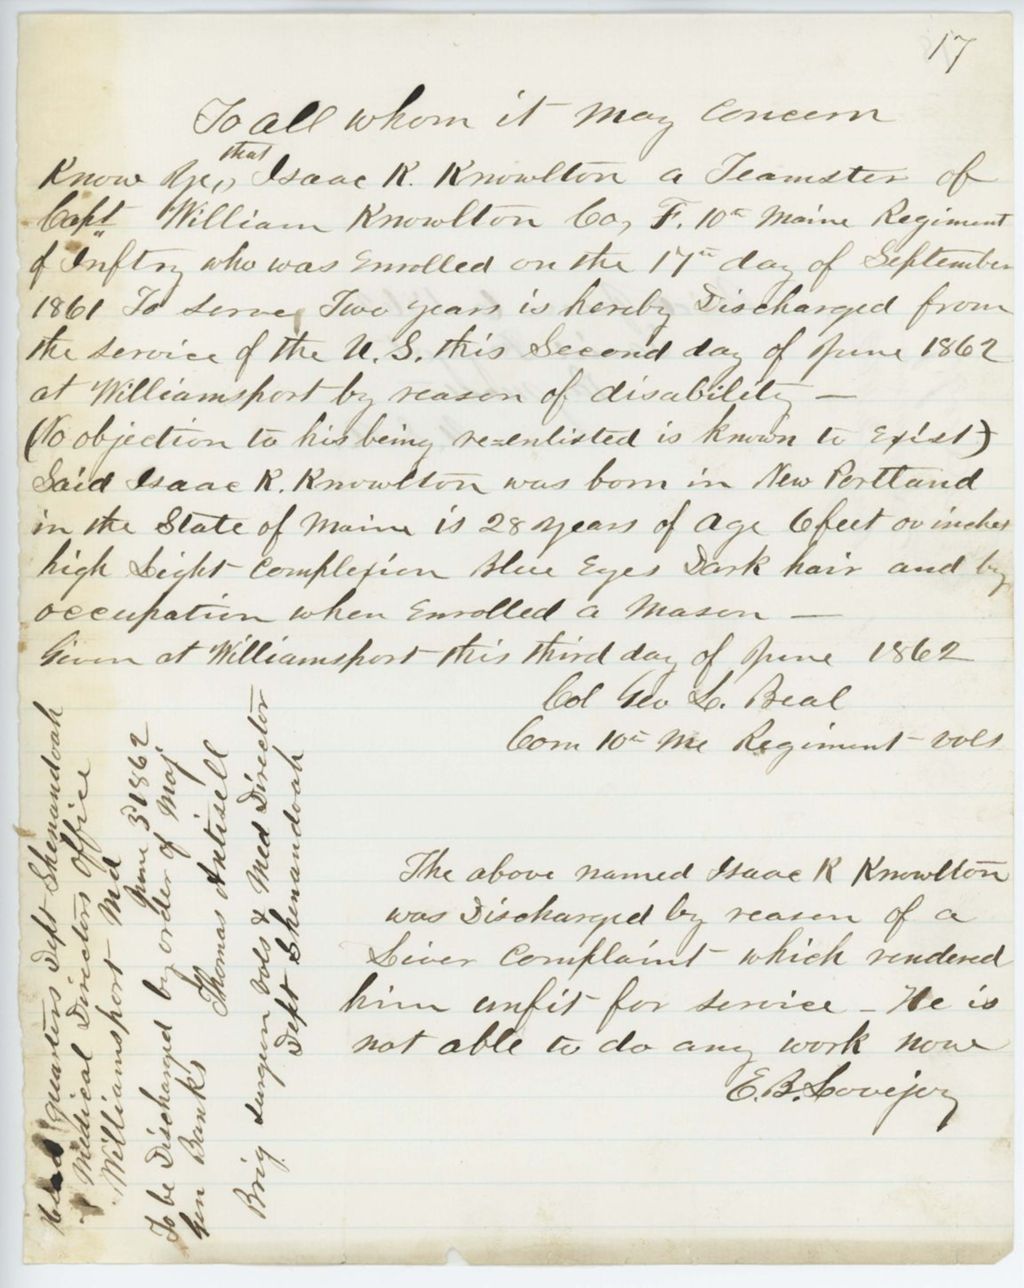 17
To all whom it may concern
Know Ye, that Isaac R. Knowlton a Teamster of
Capt William Knowlton Co, F. 10th Maine Regiment
of Inftry who was Enrolled on the 17th day of September
1861 To serve Two years is hereby Discharged from
the service of the U. S. this Second day of June 1862
at Williamsport by reason of disability —
(No objection to his being re=enlisted is known to Exist)
Said Isaac R. Knowlton was born in New Portland
in the State of Maine is 28 years of age 6 feet 00 inches
high Light Complexion Blue Eyes Dark hair and by
occupation when Enrolled a Mason —
Given at Williamsport this third day of June 1862
Col Geo L. Beal
Com 10th Me Regiment vols
The above named Isaac R Knowlton
was Discharged by reason of a
Liver Complaint which rendered
him unfit for service — He is
not able to do any work now
E. B. Lovejoy
Head quarters Dept Shenandoah
Medical Directors Office
Williamsport Md
June 3 1862
To be Discharged by order of Maj
Gen Banks
Thomas Antisell
Brig surgeon vols & Med Director
Dept Shenandoah